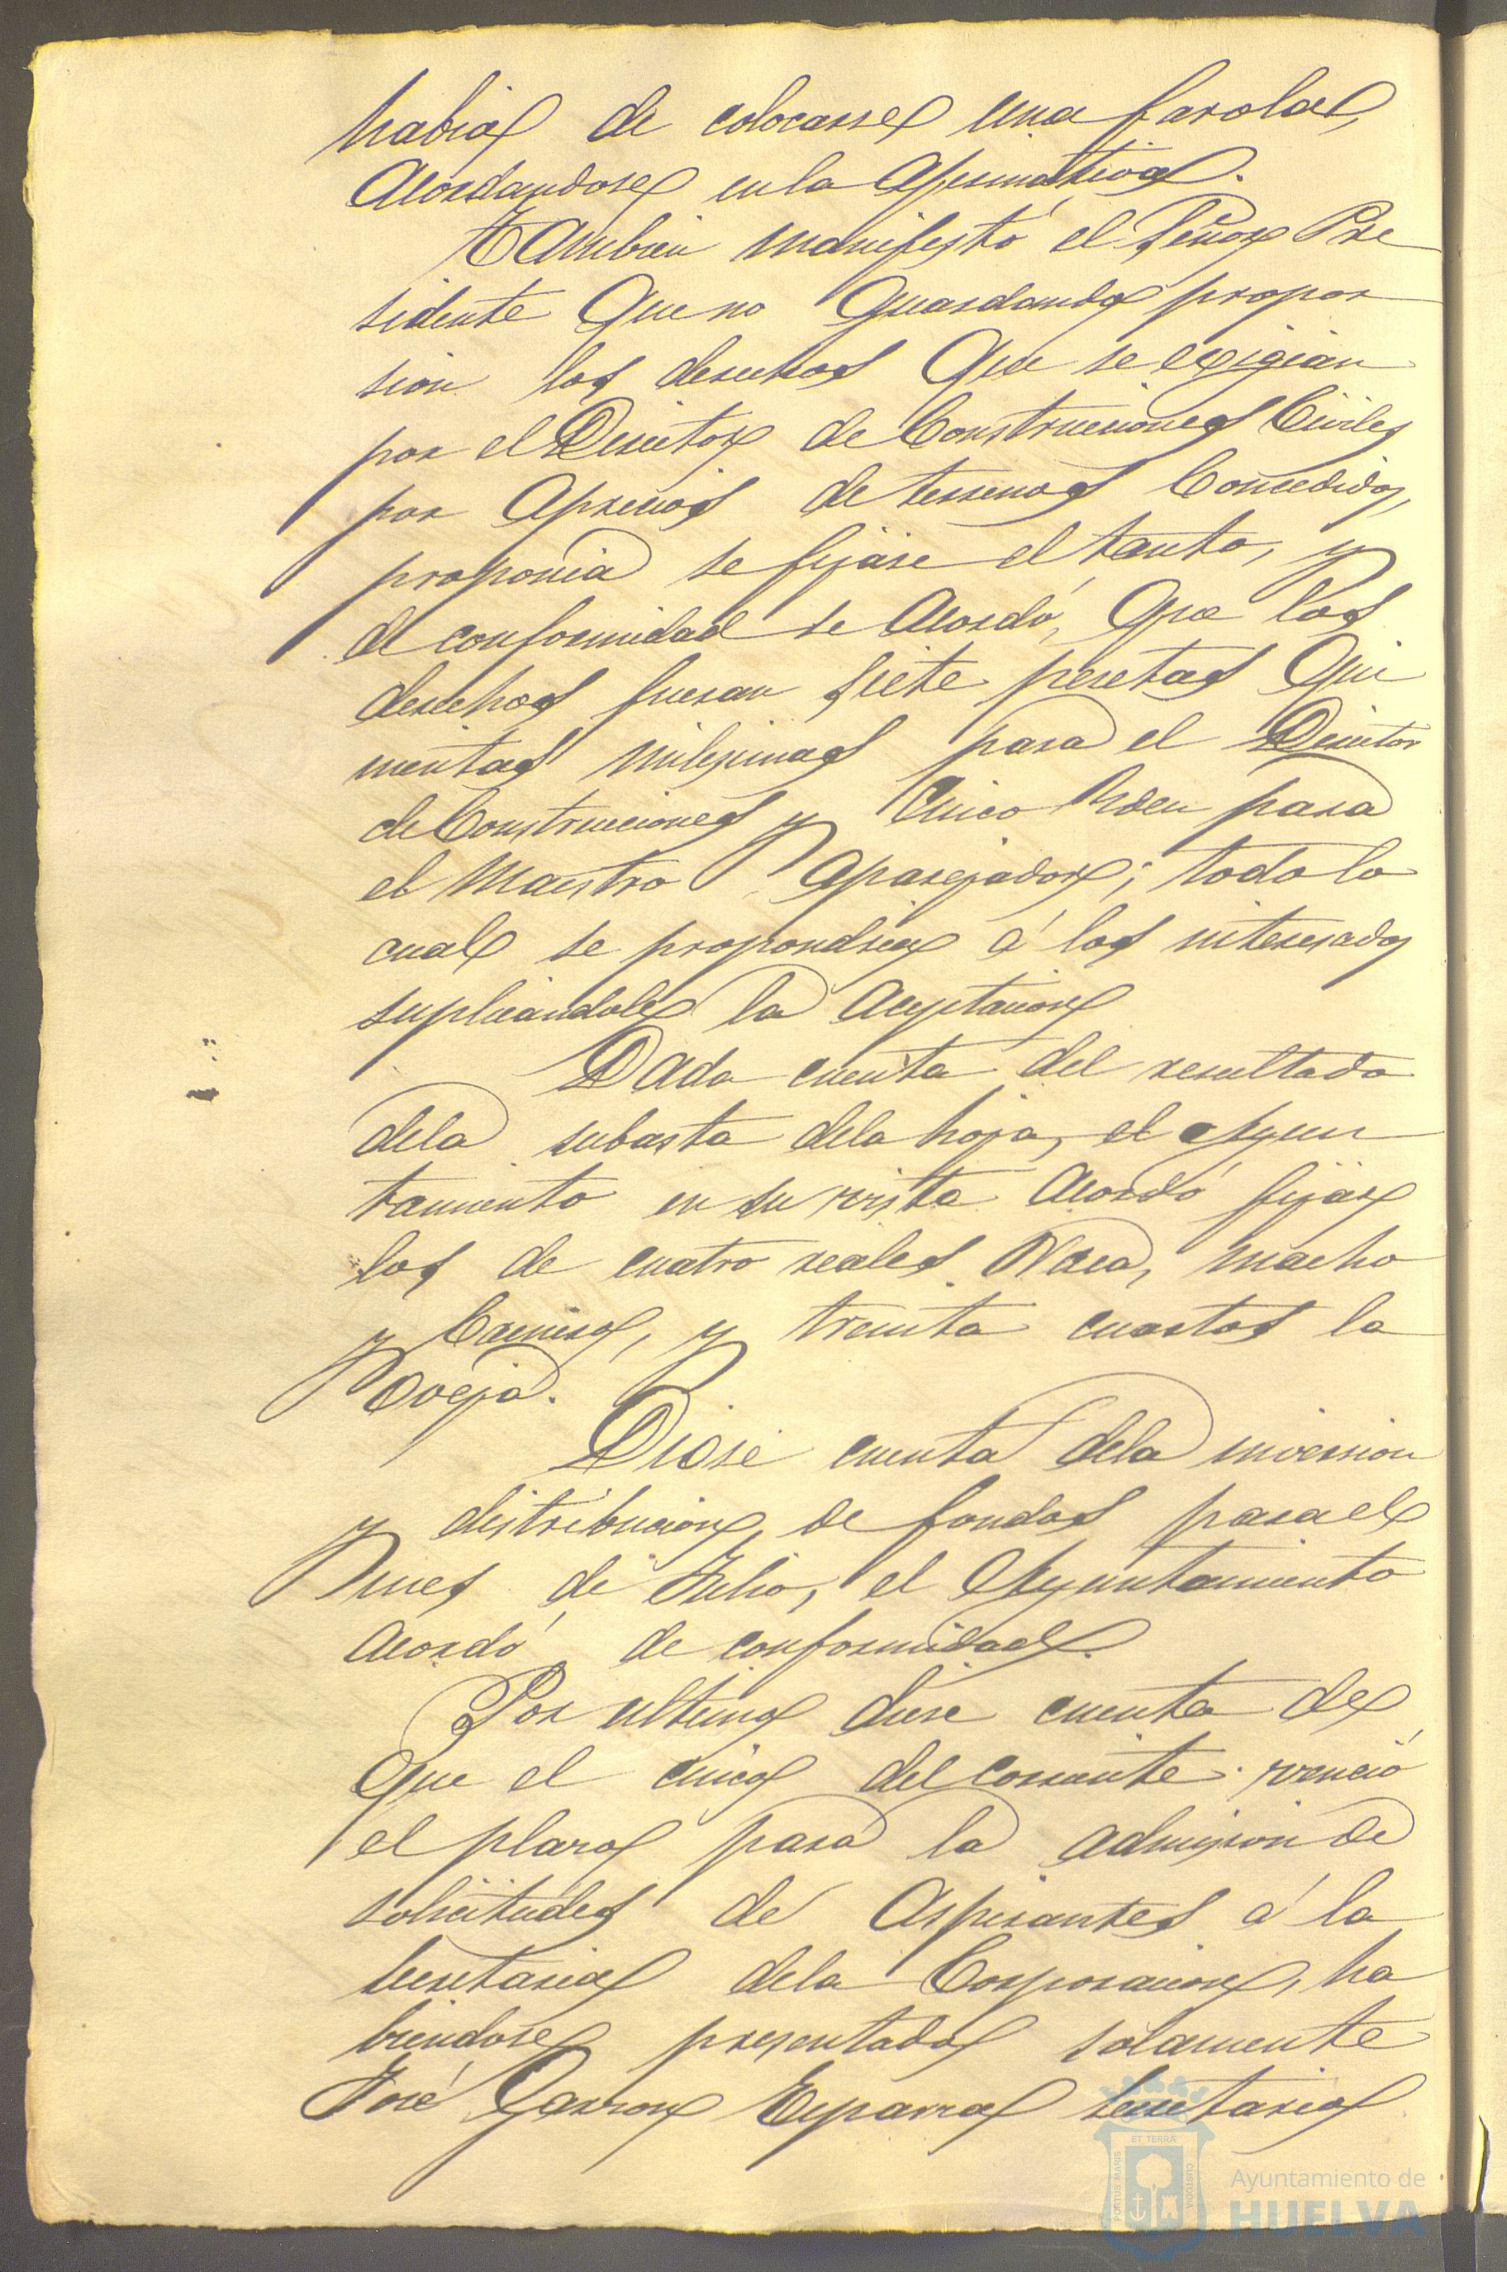 habia de colocarse una farola,
Acordandose en la Afirmativa.
Tambien manifestó el Señor Pre
sidente Que no Guardando propor
sion los derechos Que se exigian
por el Director de Construciones Civiles
por Aprecios de terrenos Concedidos,
proponia se fijase el tanto, y
de conformidad se Acordó, Que los
derechos fueran siete pesetas Qui
nientas milesimas para el Director
de Construciones y Cinco Yden para
el Maestro Aparejador; todo lo
cual se propondria á los interesados
suplicandoles la Aceptacion
Dada cuenta del resultado
dela subasta dela hoja, el Ayun
tamiento en su vista Acordó fijar
los de cuatro reales Vaca, macho
y Carnero, y treinta cuartos la
Oveja.
Diose cuenta dela inversion
y distribucion, de fondos para el
mes de Julio, el Ayuntamiento
Acordó de conformidad.
Por ultimo diese cuenta de
Que el cinco del corriente venció
el plazo para la admision de
solicitudes de Aspirantes á la
Secretaria dela Corporacion, ha
biendose presentado solamente
José Garzon Esparra Secretario
PORTUS MARIS
ET TERRA
CUSTODIA
Ayuntamiento de
HUELVA